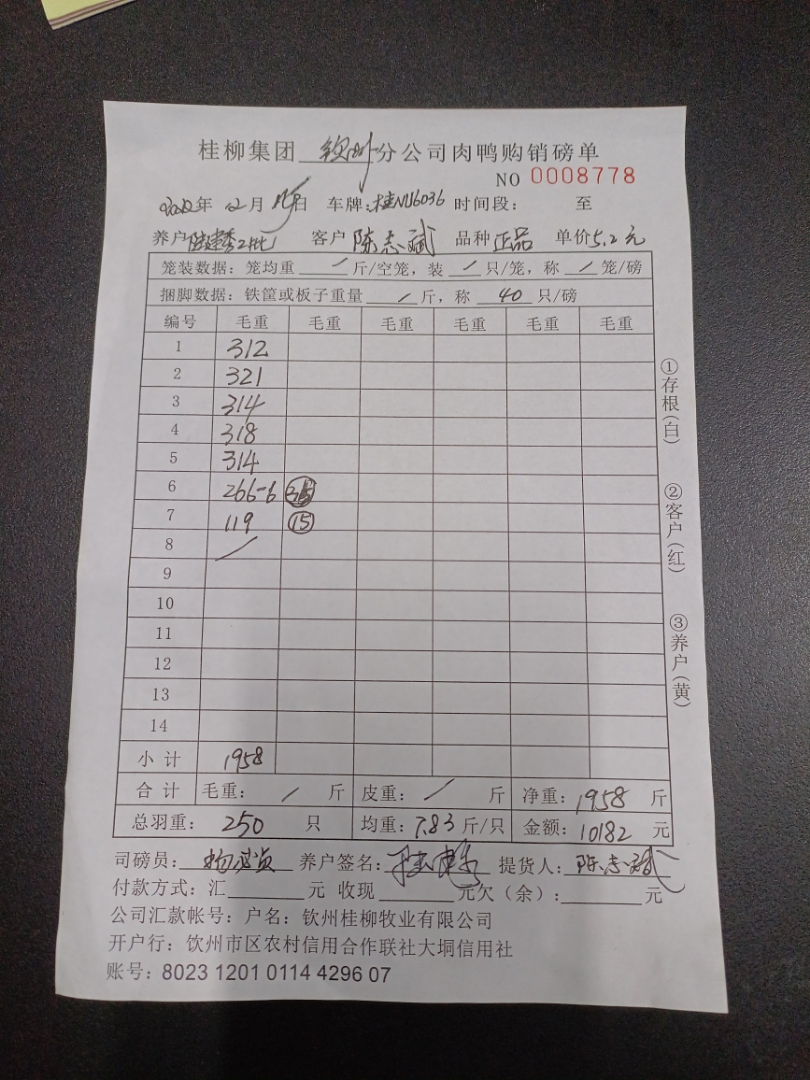 桂柳集团 钦州 分公司肉鸭购销磅单
NO 0008778
2022年 12月 日 车牌:桂NU6036 时间段: 至
养户 陆建秀2批 客户 陈志斌 品种 正品 单价5.2元
笼装数据: 笼均重 / 斤/空笼, 装 / 只/笼, 称 / 笼/磅
捆脚数据: 铁筐或板子重量 / 斤, 称 40 只/磅
编号 毛重 毛重 毛重 毛重 毛重 毛重
1 312
2 321
3 314
4 318
5 314
6 266-6
7 119 ⑮
8 /
9
10
11
12
13
14
小计 1958
合计 毛重: / 斤 皮重: / 斤 净重: 1958 斤
总羽重: 250 只 均重: 7.83 斤/只 金额: 10182 元
司磅员: 养户签名: 提货人: 陈志斌
付款方式: 汇 元 收现 元欠(余): 元
公司汇款帐号: 户名: 钦州桂柳牧业有限公司
开户行: 钦州市区农村信用合作联社大垌信用社
账号: 8023 1201 0114 4296 07
①存根(白)
②客户(红)
③养户(黄)